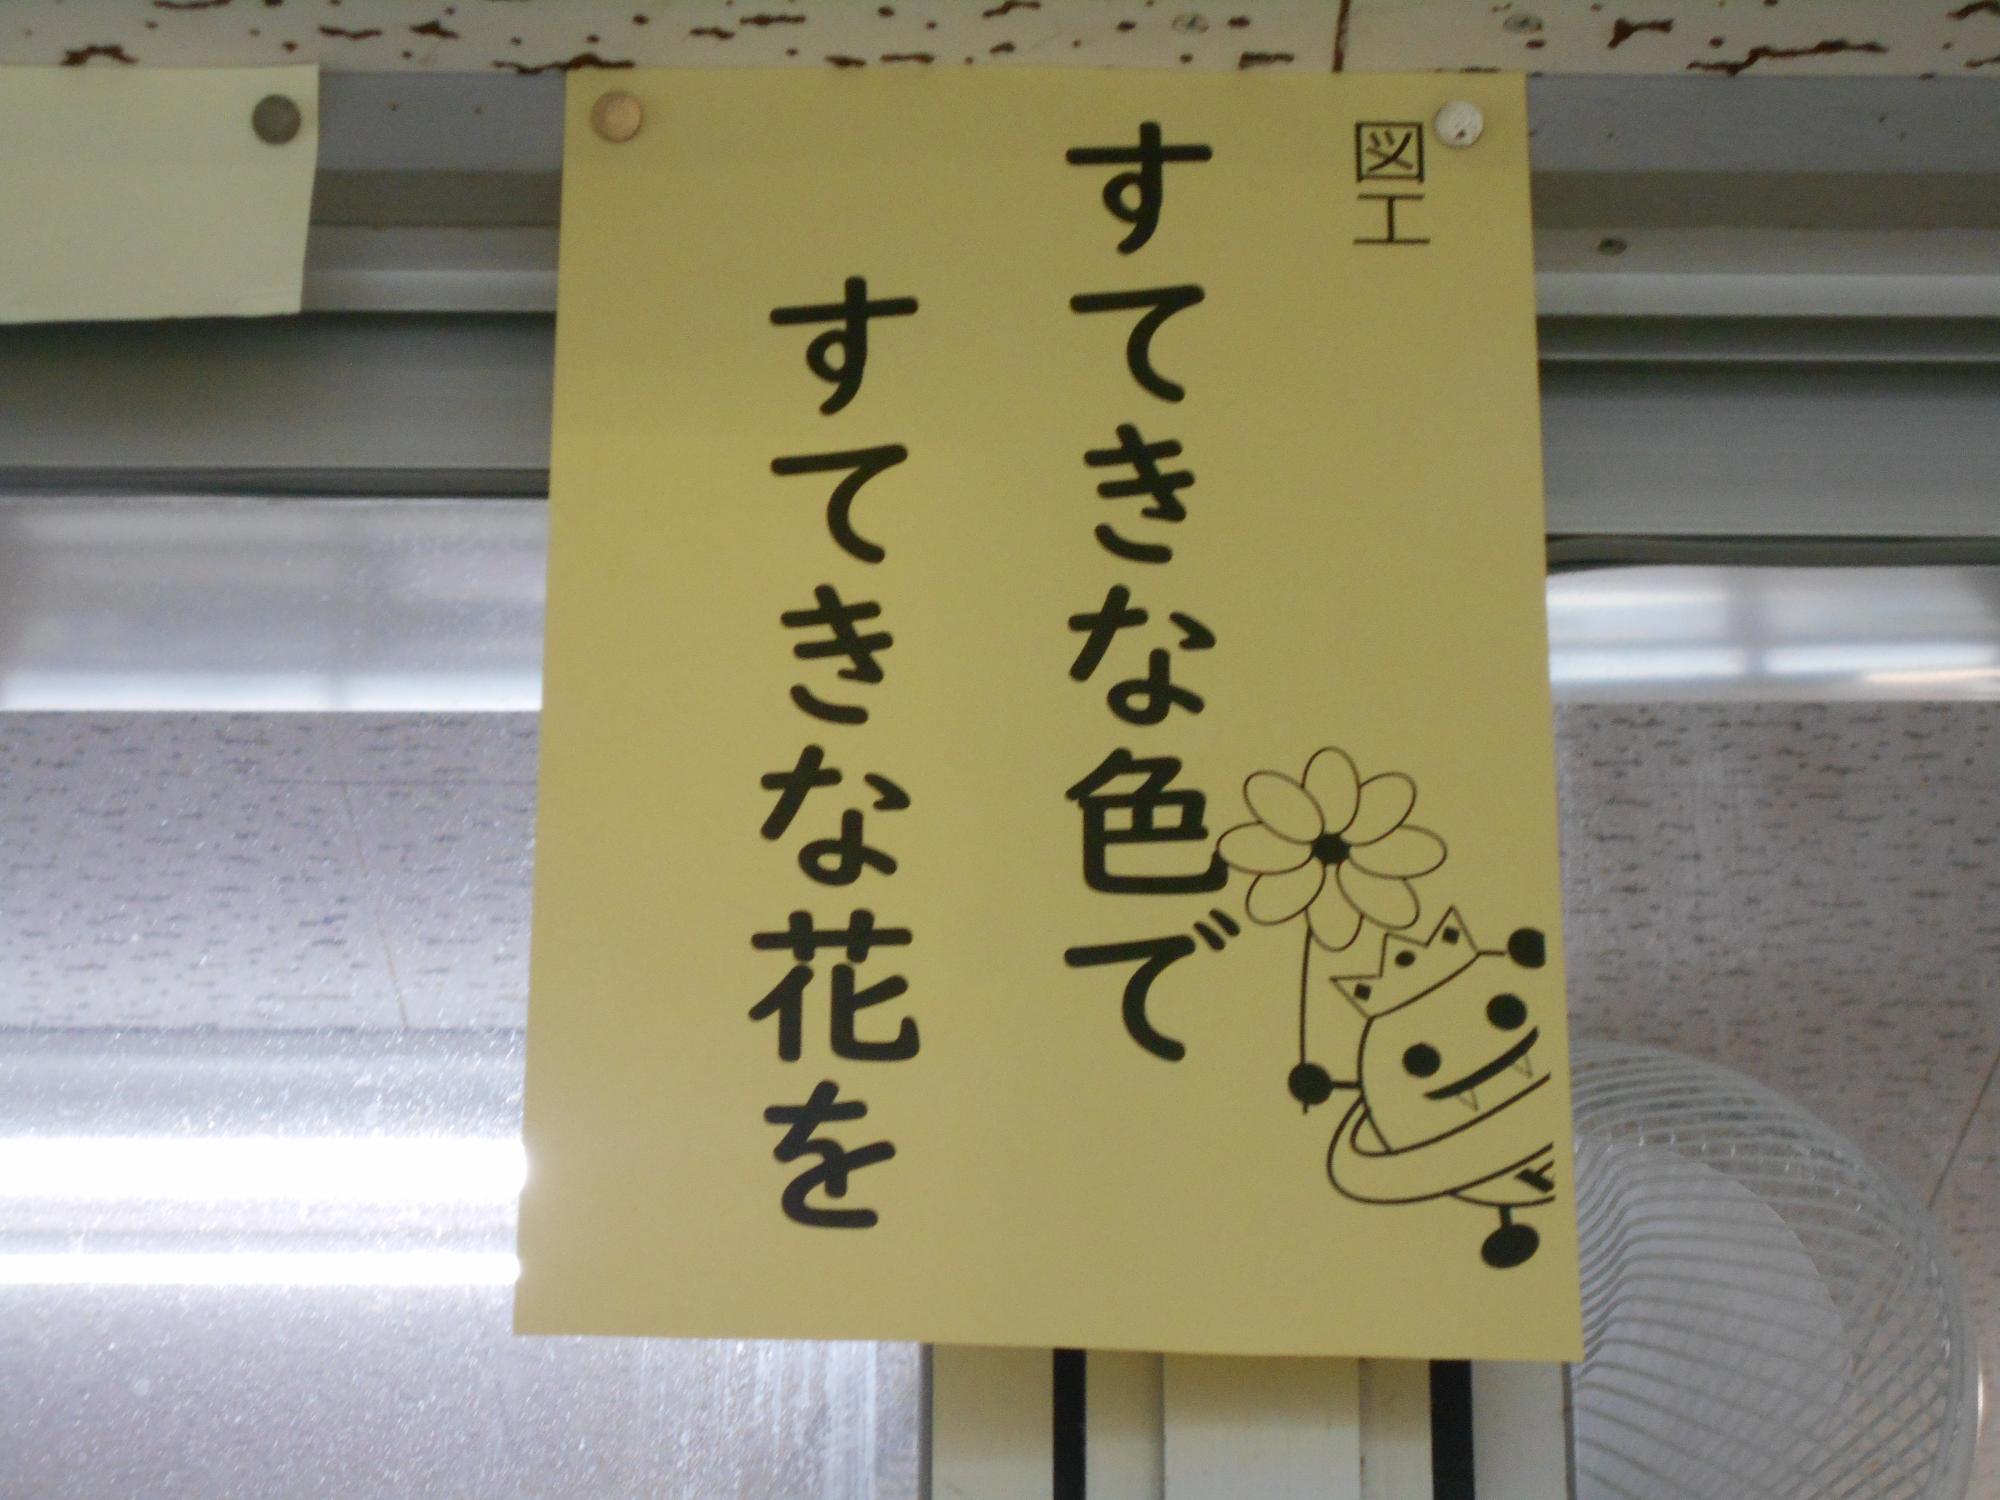 図工
すてきな色で
すてきな花を